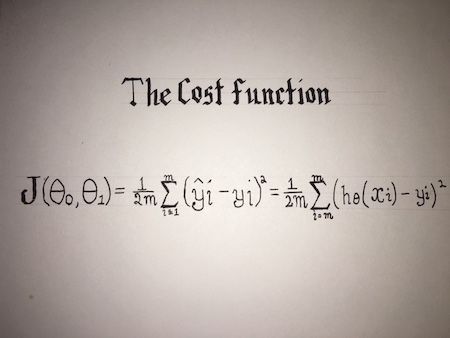 The Cost Function
J(θ₀,θ₁) = 1/2m ∑ᵢ₌₁ᵐ (ŷi - yi)² = 1/2m ∑ᵢ₌ₘᵐ (hθ(xi) - yi)²